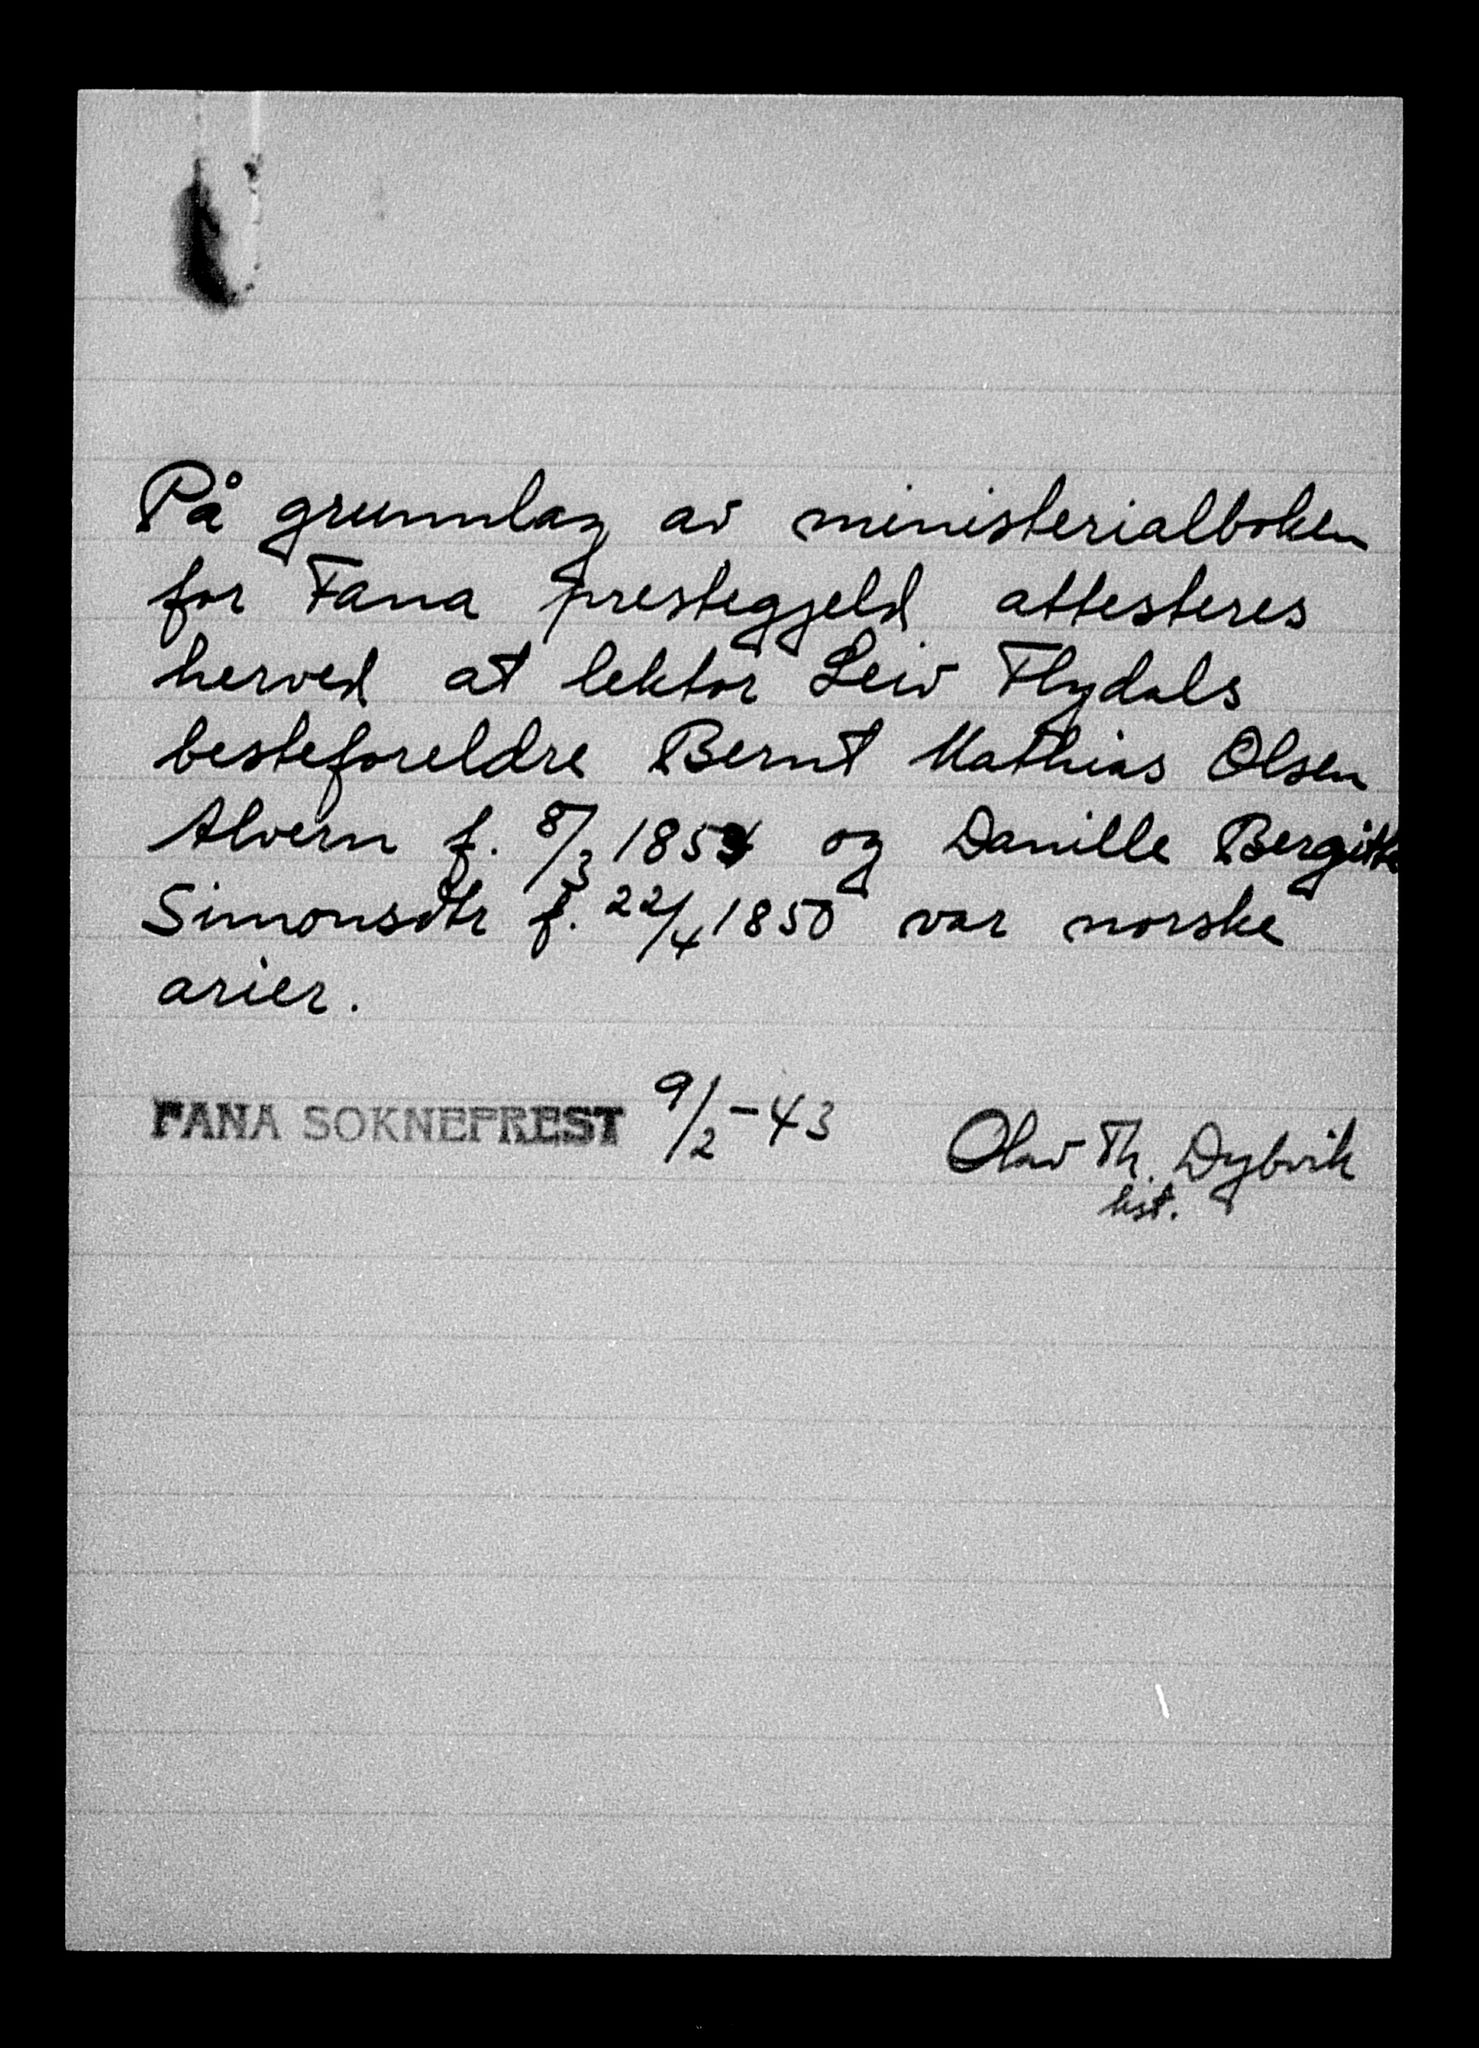 På grunnlag av ministerialboken
for Fana prestegjeld attesteres
herved at lektor Leiv Flydals
besteforeldre Bernt Mathias Olsen
Alvern f. 8/3 1854 og Danille Bergitte
Simonsdtr f. 22/4 1850 var norske
arier.
FANA SOKNEPREST 9/2-43 Olav Th. Dybvik